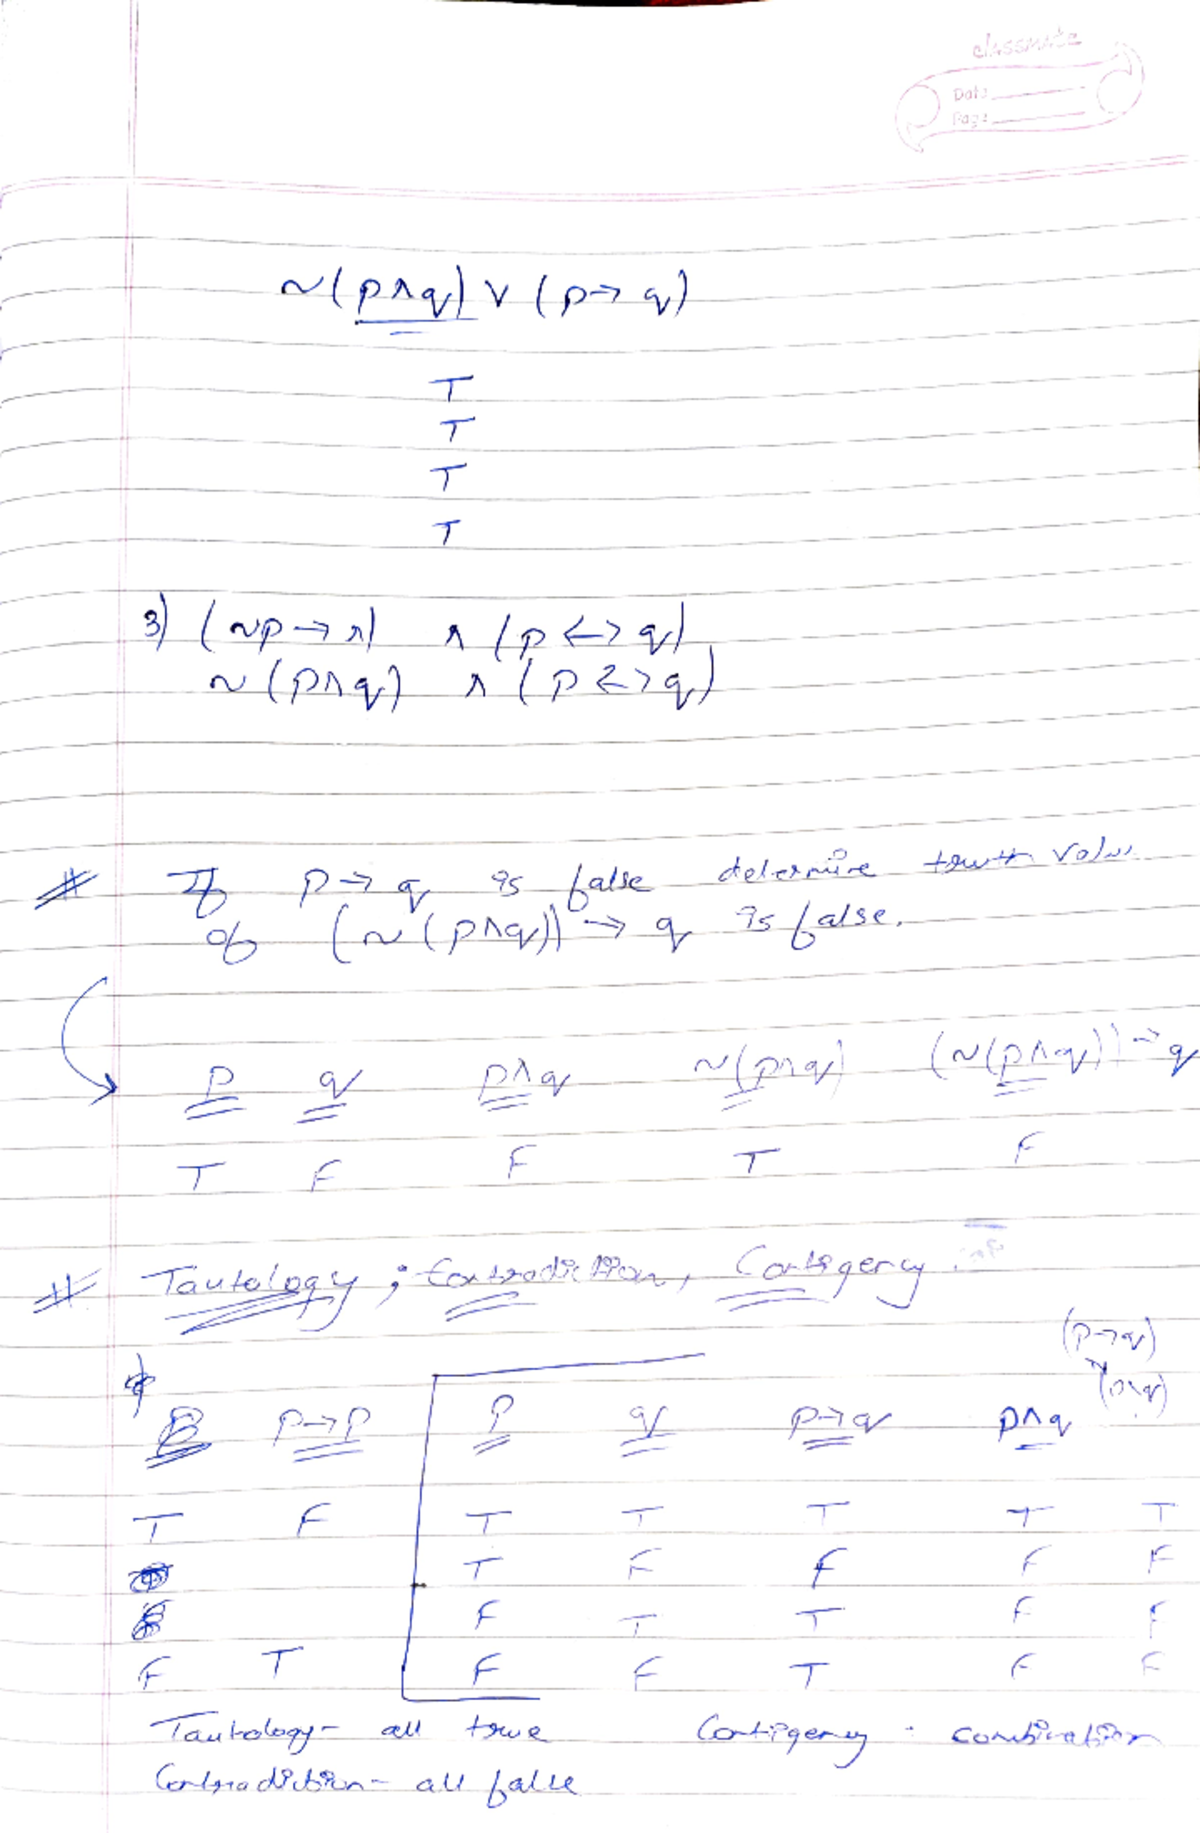 classmate
Date
Page
~(p∧q) ∨ (p→q)
T
T
T
T
3) (~p→∧) ∧ (p<->q)
~(p∧q) ∧ (p<->q)
# If p→q is false determine truth
of (~(p∧q))→q is false.
p q p∧q ~(p∧q) (~(p∧q))→q
T F F T F
# Tautology, Contradiction, Contigency
(p→q)
p→p p q p→q p∧q
T F T T T T T
T F F F F
F T T F F
F T F F T F F
Tautology- all true Contigency - combination
Contradiction- all false